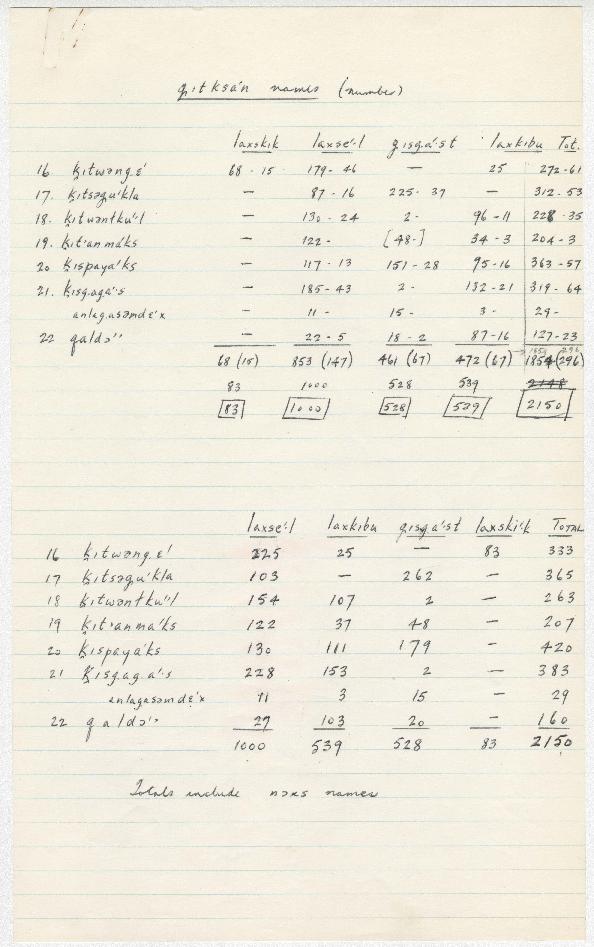 gitksa'n names (number)
laxskik laxse'·l gisga'st laxkibu Tot.
16. ḳitwəng.ɛ' 68 - 15 179 - 46 — 25 272-61
17. ḳitsəgu'kla — 87 - 16 225 - 37 — 312-53
18. ḳitwəntku'·l — 130 - 24 2 - 96 - 11 228-35
19. ḳit·anmá'ks — 122 - [48-] 34 - 3 204-3
20 ḳispaya'ks — 117 - 13 151 - 28 95-16 363-57
21. ḳisg.ag.a'·s — 185-43 2 - 132-21 319-64
anlag.asəmdɛ'x — 11 - 15 - 3 - 29 -
22 qaldɔ'' — 22-5 18-2 87-16 127-23
1854 296
68 (15) 853 (147) 461 (67) 472 (67) 1854 (296)
83 1000 528 539 2148
83 1000 528 539 2150
laxse'·l laxkibu gisga'st laxski·k TOTAL
16 ḳitwəng.ɛ' 225 25 — 83 333
17 ḳitsəgu'kla 103 — 262 — 365
18 ḳitwəntku'·l 154 107 2 — 263
19 ḳit·anma'ks 122 37 48 — 207
20 ḳispaya'ks 130 111 179 — 420
21 ḳisg.ag.a'·s 228 153 2 — 383
anlagasəmdɛ'x 11 3 15 — 29
22 qaldɔ'' 27 103 20 — 160
1000 539 528 83 2150
Totals include nɔxs names